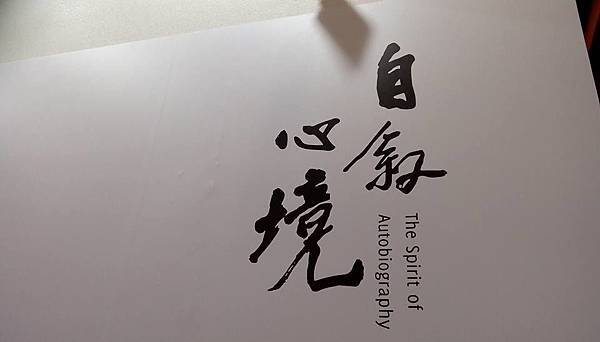 自叙
心境
The Spirit of
Autobiography